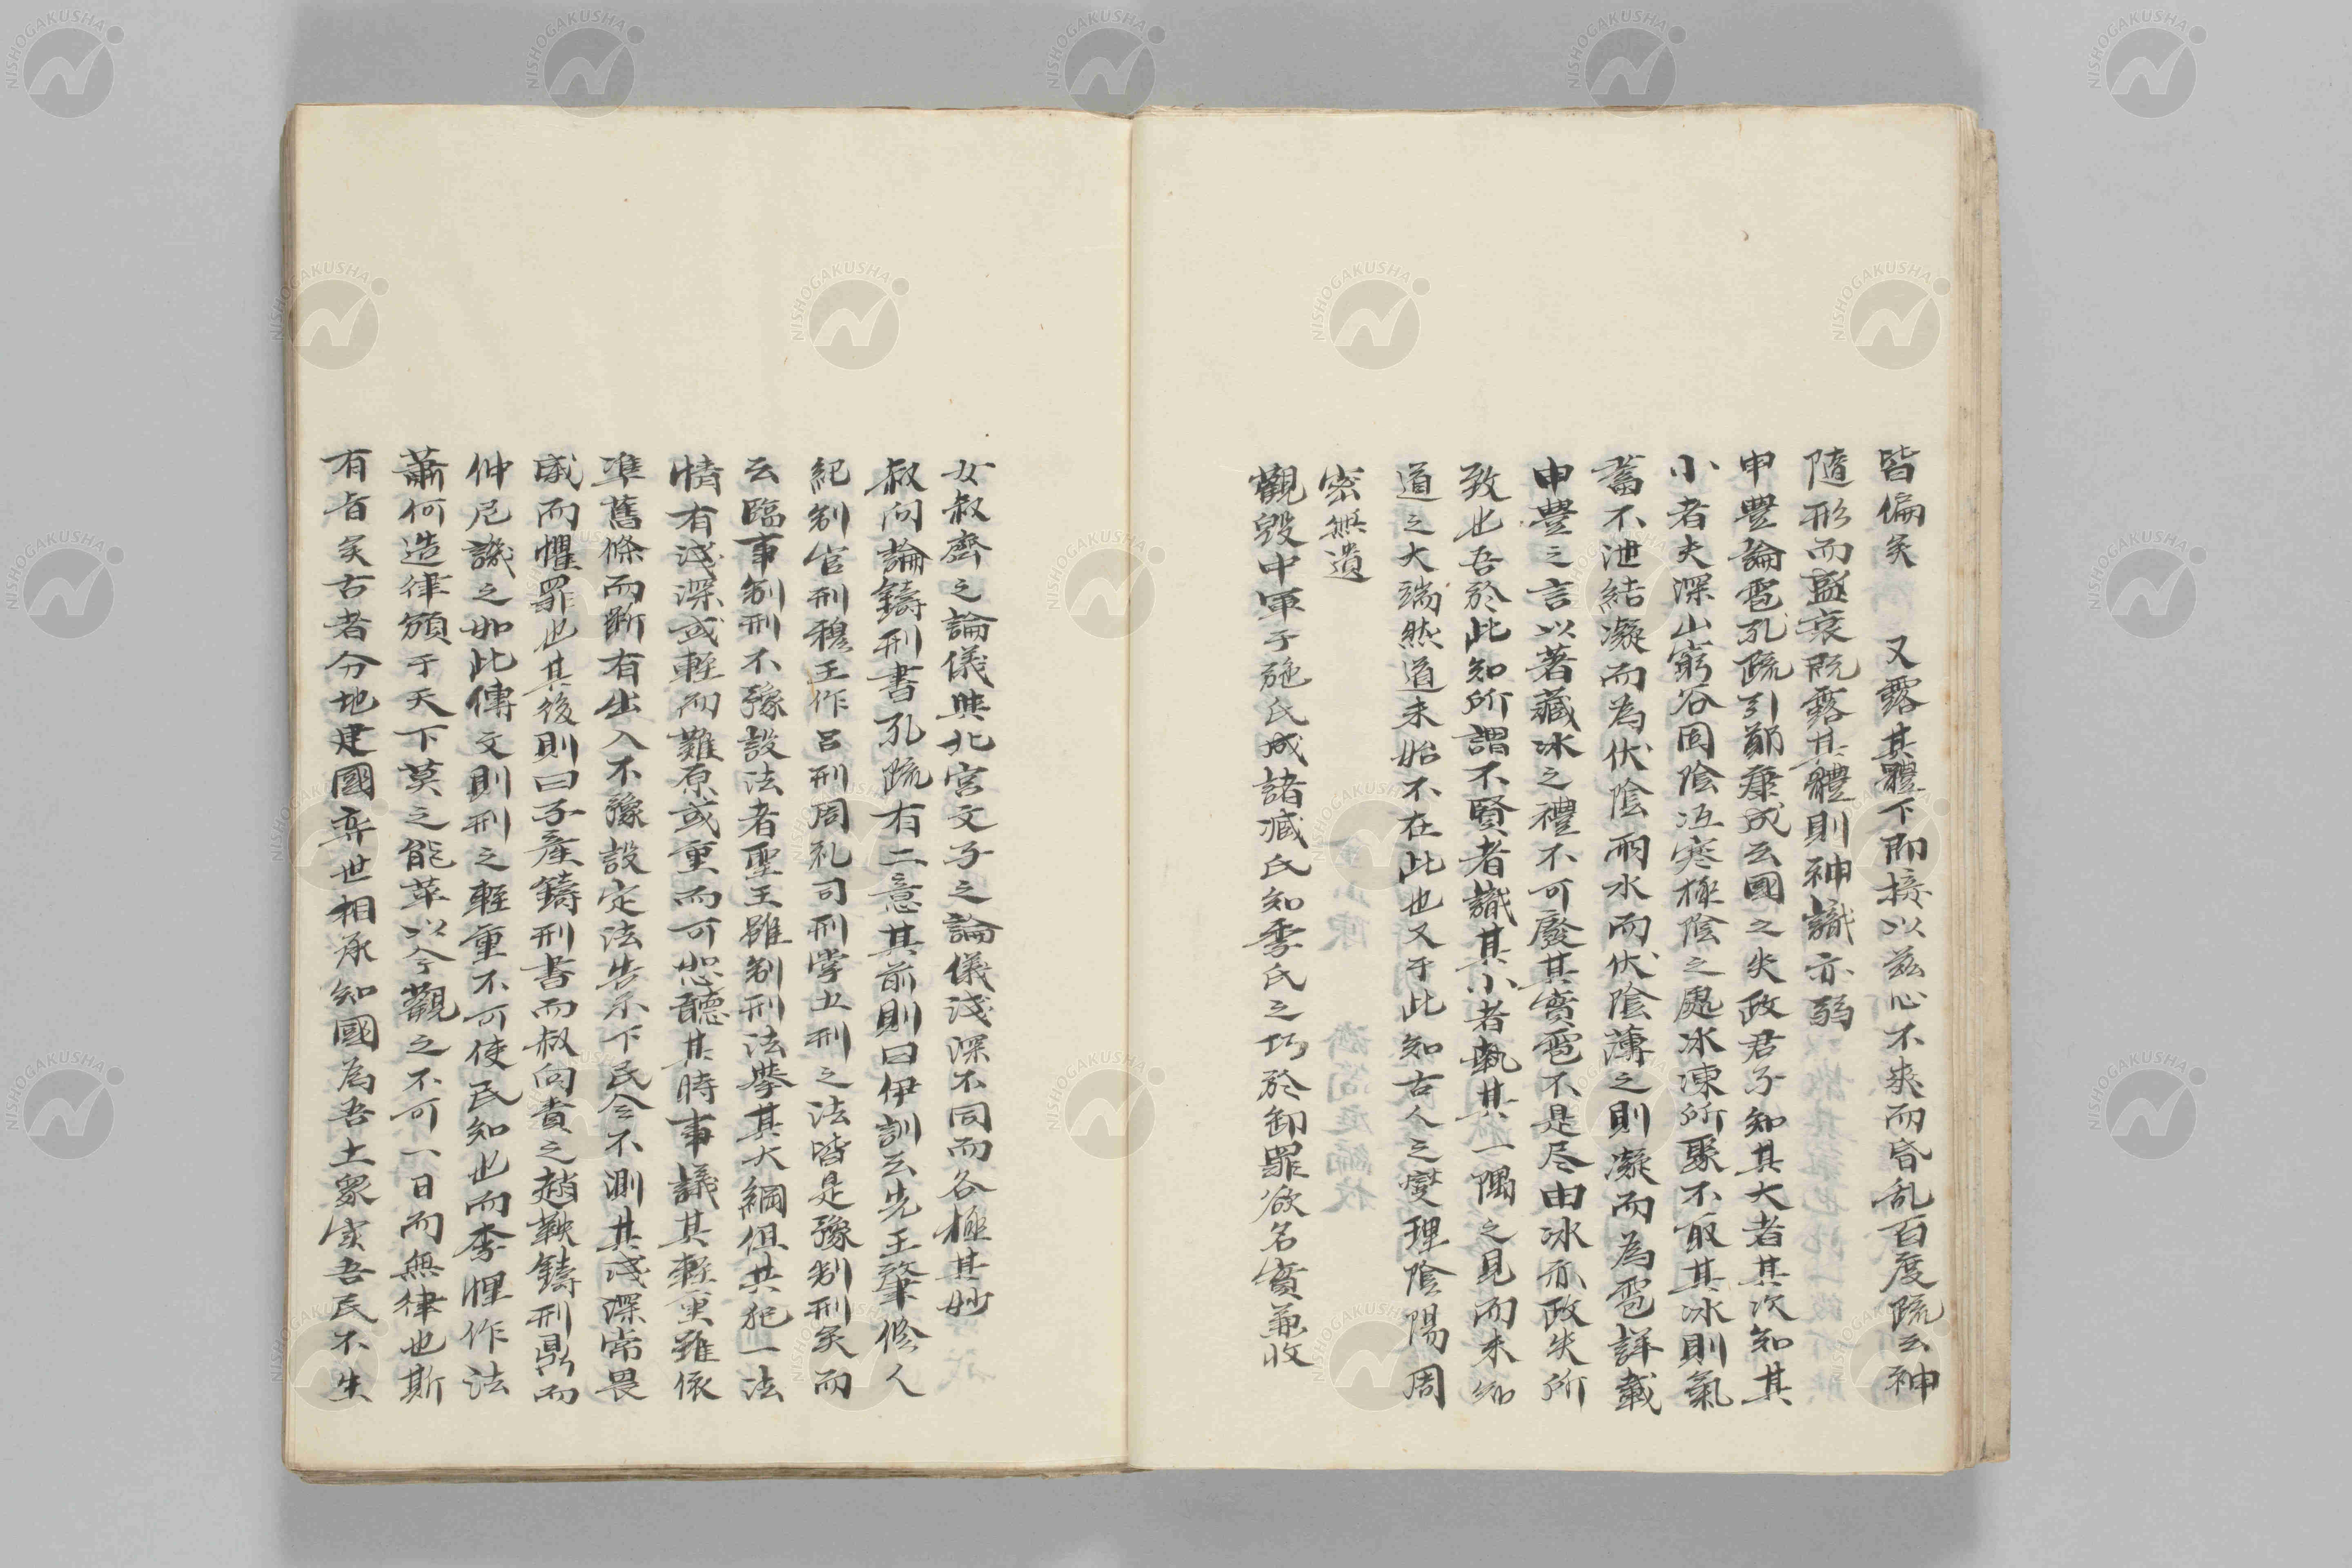 皆偏矣　又露其體下即接以茲心不爽而昏乱百度疏云神
隨形而盛衰既露其體則神識亦弱
申豐論雹孔疏引鄭康成云國之失政君子知其大者其次知其
小者夫深山窮谷固陰冱寒極陰之處冰凍所聚不取其冰則氣
蓄不泄結凝而為伏陰雨水而伏陰薄之則凝而為雹詳載
申豊之言以著藏冰之禮不可廢其實雹不是尽由冰亦政失所
致也吾於此知所謂不賢者識其小者執其一隅之見而未知
道之大端然道未始不在此也又于此知古人之變理陰陽周
密無遺
觀毀中軍于施氏成諸臧氏知季氏之巧於卸罪欲名實兼收
女叔齊之論儀與北宮文子之論儀淺深不同而各極其妙
叔向論鑄刑書孔疏有二意其前則曰伊訓云先王肇修人
紀制官刑穆王作呂刑周礼司刑掌五刑之法皆是豫制刑矣而
云臨事制刑不豫設法者聖王雖制刑法舉其大綱但共犯一法
情有淺深或輕而難原或重而可恕聽其時事議其輕重雖依
準舊條而断有出入不豫設定法告示下民令不測其淺深常畏
威而懼罪也其後則曰子產鑄刑書而叔向責之趙鞅鑄刑鼎而
仲尼譏之如此傳文則刑之輕重不可使民知也而李悝作法
蕭何造律頒于天下莫之能革以今觀之不可一日而無律也斯
有旨矣古者分地建國弈世相承知國為吾土眾实吾民不生
NISHOGAKUSHA